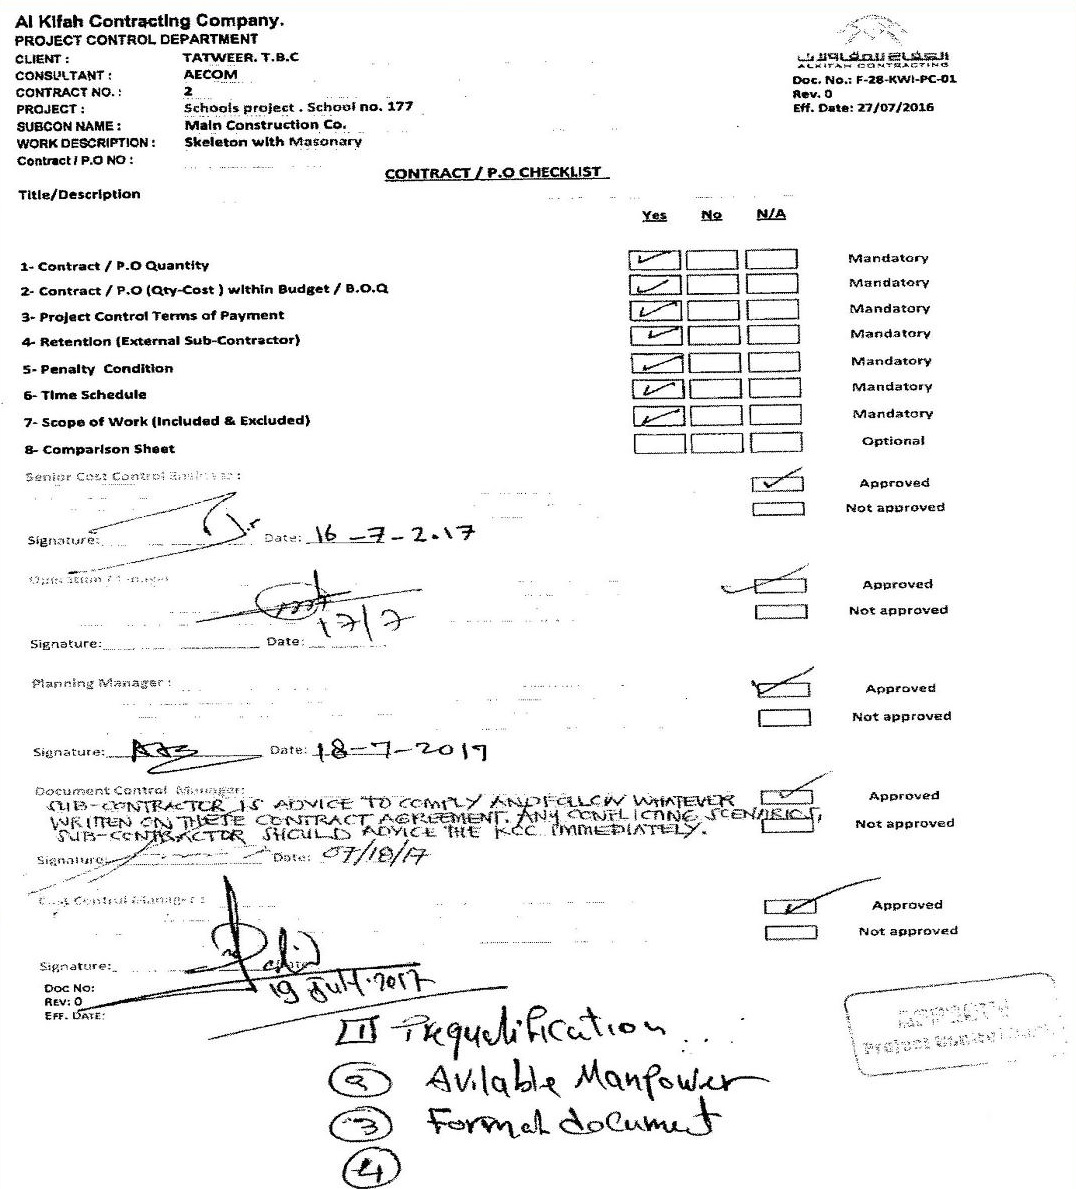 Al Kifah Contracting Company.
PROJECT CONTROL DEPARTMENT
CLIENT : TATWEER. T.B.C
CONSULTANT : AECOM
CONTRACT NO. : 2
PROJECT : Schools project . School no. 177
SUBCON NAME : Main Construction Co.
WORK DESCRIPTION : Skeleton with Masonary
Contract / P.O NO :
الكفاح للمقاولات
ALKIFAH CONTRACTING
Doc. No.: F-28-KWI-PC-01
Rev. 0
Eff. Date: 27/07/2016
CONTRACT / P.O CHECKLIST
Title/Description
Yes No N/A
1- Contract / P.O Quantity Mandatory
2- Contract / P.O (Qty-Cost ) within Budget / B.O.Q Mandatory
3- Project Control Terms of Payment Mandatory
4- Retention (External Sub-Contractor) Mandatory
5- Penalty Condition Mandatory
6- Time Schedule Mandatory
7- Scope of Work (Included & Excluded) Mandatory
8- Comparison Sheet Optional
Senior Cost Control Engineer :
Approved
Not approved
Signature: Date: 16-7-2017
Approved
Not approved
17/7
Signature: Date:
Planning Manager :
Approved
Not approved
Signature: Date: 18-7-2017
Document Control Manager:
Approved
SUB-CONTRACTOR IS ADVICE TO COMPLY AND FOLLOW WHATEVER
WRITTEN ON THESE CONTRACT AGREEMENT. ANY CONFLICTING SCENARIOS,
Not approved
SUB-CONTRACTOR SHOULD ADVICE THE KCC IMMEDIATELY.
Signature: Date: 07/18/17
Cost Control Manager :
Approved
Not approved
Signature: Date
19 July.2017
Doc No:
REV: 0
EFF. DATE:
1 Prequalification
2 Avilable Manpower
3 Formal document
4